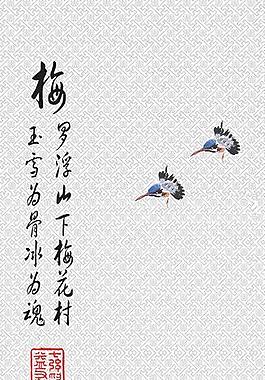 梅
罗浮山下梅花村
玉雪为骨冰为魂